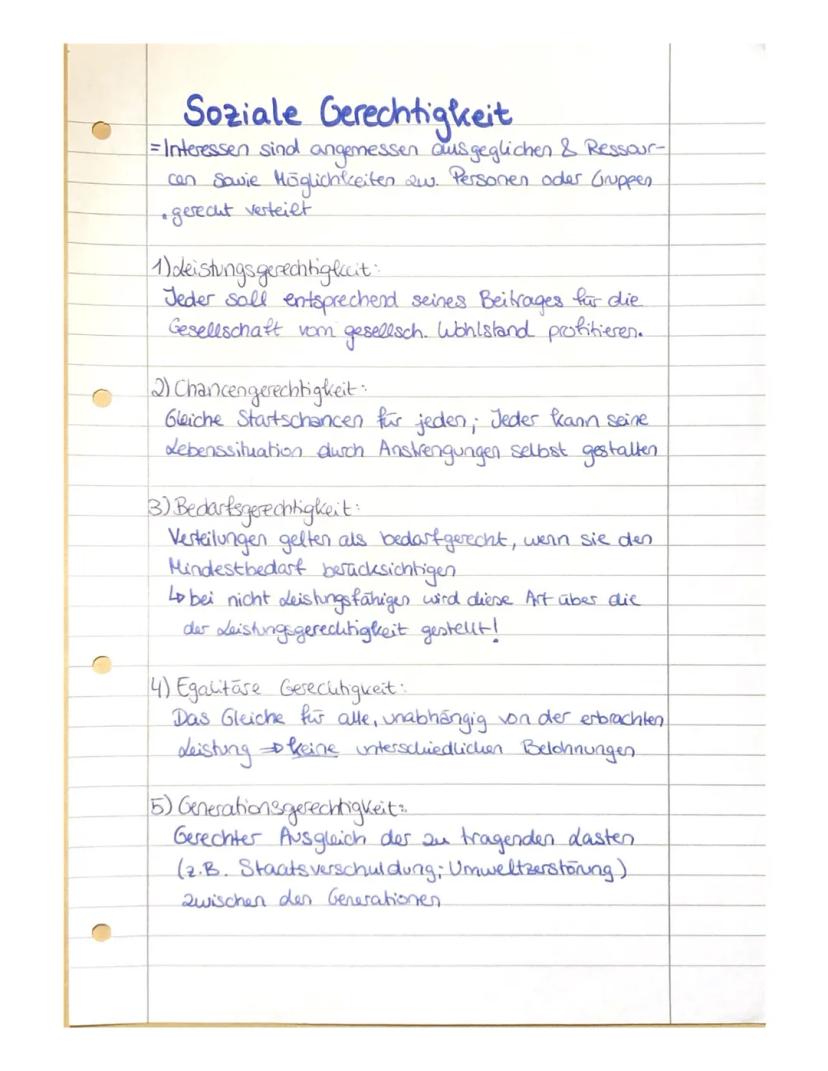 Soziale Gerechtigkeit
= Interessen sind angemessen ausgeglichen & Ressour-
cen sowie Möglichkeiten zw. Personen oder Gruppen
gerecht verteilt
1) Leistungsgerechtigkeit:
Jeder soll entsprechend seines Beitrages für die
Gesellschaft vom gesellsch. Wohlstand profitieren.
2) Chancengerechtigkeit:
Gleiche Startschancen für jeden; Jeder kann seine
Lebenssituation durch Anstrengungen selbst gestalten
3) Bedarfsgerechtigkeit:
Verteilungen gelten als bedarfgerecht, wenn sie den
Mindestbedarf berücksichtigen
↳ bei nicht Leistungsfähigen wird diese Art über die
der Leistungsgerechtigkeit gestellt!
4) Egalitäre Gerechtigkeit:
Das Gleiche für alle, unabhängig von der erbrachten
Leistung ⇒ keine unterschiedlichen Belohnungen
5) Generationsgerechtigkeit:
Gerechter Ausgleich der zu tragenden Lasten
(z.B. Staatsverschuldung; Umweltzerstörung)
zwischen den Generationen